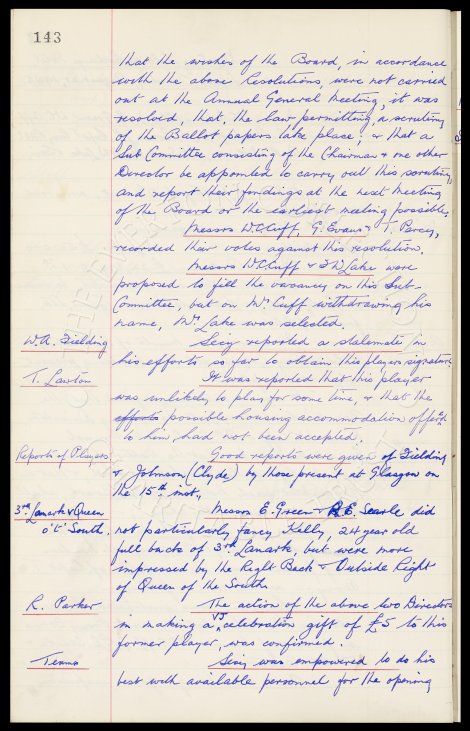 143
that the wishes of the Board, in accordance
with the above Resolutions, were not carried
out at the Annual General Meeting, it was
resolved, that, the law permitting, a scrutiny
of the Ballot papers take place, & that a
Sub Committee consisting of the Chairman & one other
Director be appointed to carry out this scrutiny,
and report their findings at the next Meeting
of the Board or the earliest meeting possible.
Messrs W.C. Cuff, G. Evans & T. Percy,
recorded their votes against this resolution.
Messrs W.C. Cuff & F.W. Lake were
proposed to fill the vacancy on this Sub-
Committee, but on Mr. Cuff withdrawing his
name, Mr. Lake was selected.
W.A. Fielding Secy reported a stalemate in
his efforts so far to obtain this players signature.
T. Lawton It was reported that this player
was unlikely to play for some time, & that the
efforts possible housing accommodation offered
to him had not been accepted.
Reports of Players Good reports were given of Fielding
& Johnson (Clyde) by those present at Glasgow on
the 15th inst.,
3rd Lanark & Queen Messrs E. Green & R.E. Searle did
o't' South. not particularly fancy Kelly, 24 year old
full backs of 3rd Lanark, but were more
impressed by the Right Back & Outside Right
of Queen of the South.
R. Parker The action of the above two Directors
in making a VJ celebration gift of £5 to this
former player, was confirmed.
Teams Secy was empowered to do his
best with available personnel for the opening